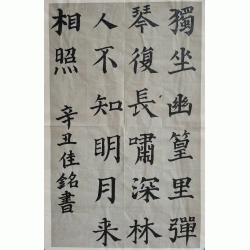 獨坐幽篁里彈
琴復長嘯深林
人不知明月来
相照 辛丑佳銘書